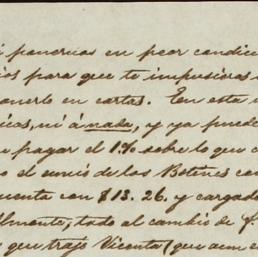 ponernos en peor condici
os para que te impusieras
ponerlo en cartas. En esta
cias, ni á nada, y ya puede
pagar el 1% sobre lo que
o el envió de los Botines con
uenta con $13.26. y cargado
lmente, todo al cambio de
que trajo Vicenta (que aun